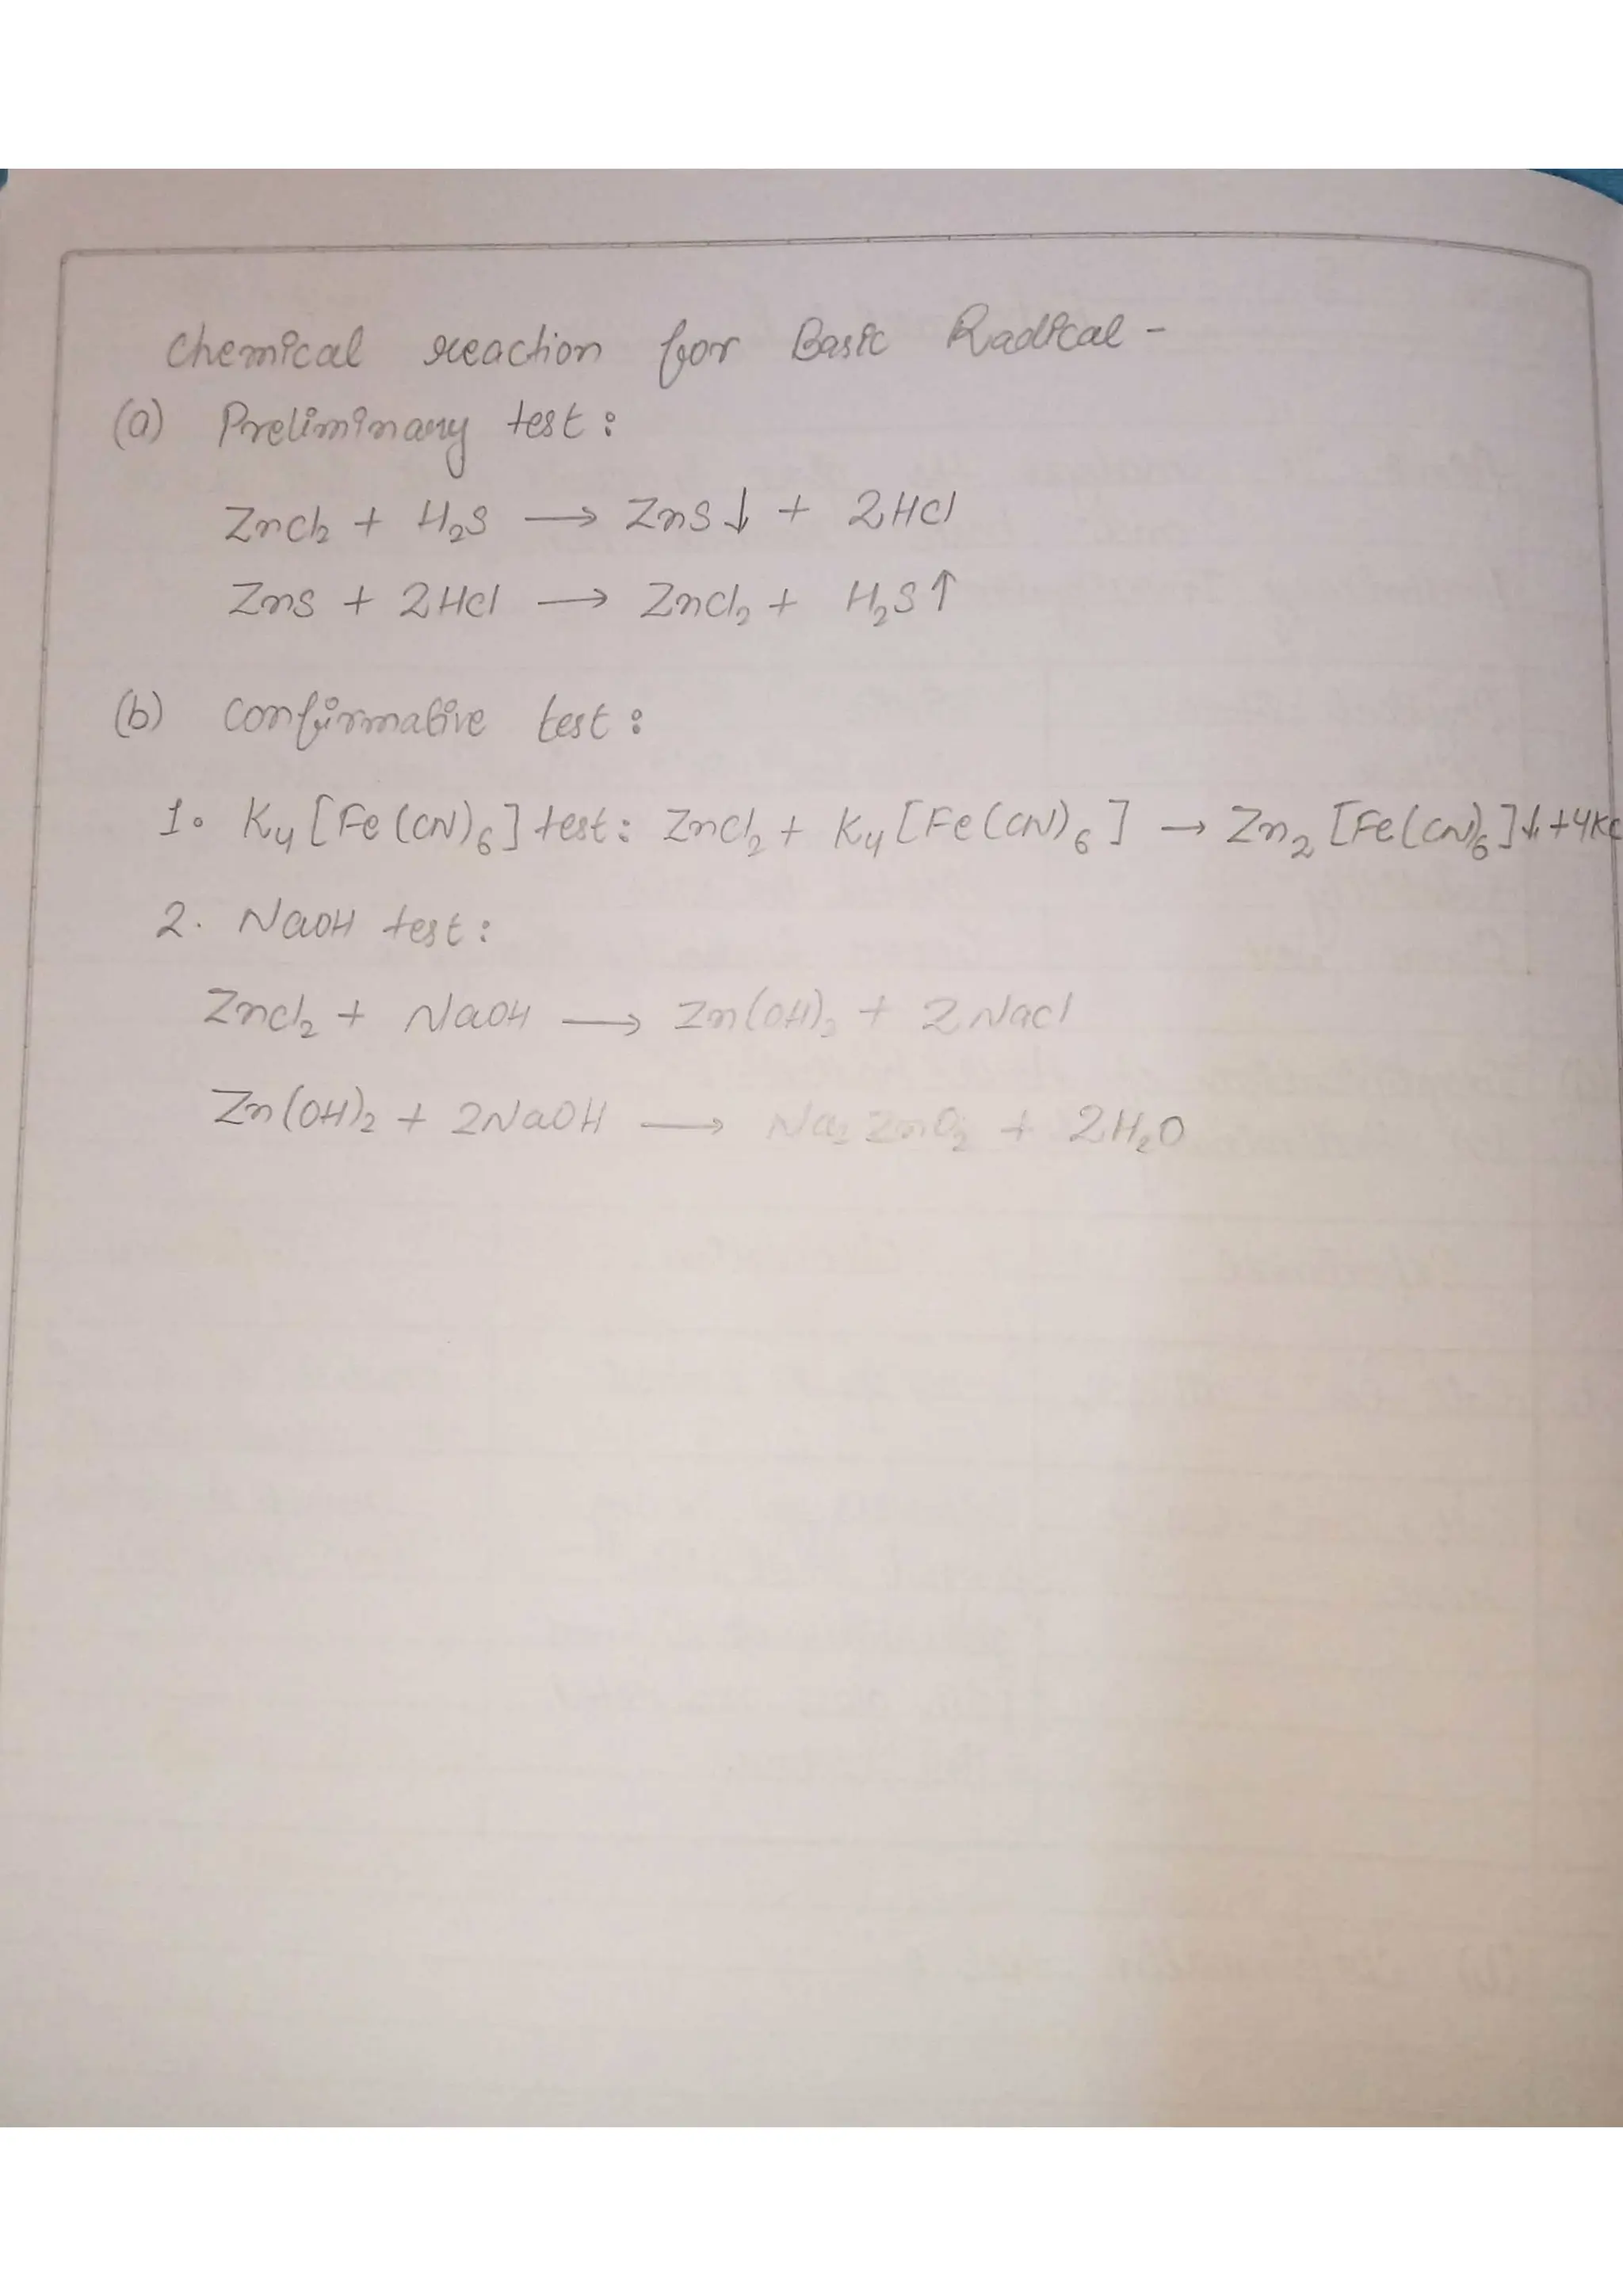 Chemical reaction for Basic Radical -
(a) Preliminary test :
ZnCl₂ + H₂S → ZnS↓ + 2HCl
ZnS + 2HCl → ZnCl₂ + H₂S↑
(b) Confirmative test :
1. K₄[Fe(CN)₆] test : ZnCl₂ + K₄[Fe(CN)₆] → Zn₂[Fe(CN)₆]↓ + 4KC
2. NaOH test :
ZnCl₂ + NaOH → Zn(OH)₂ + 2NaCl
Zn(OH)₂ + 2NaOH → Na₂ZnO₂ + 2H₂O